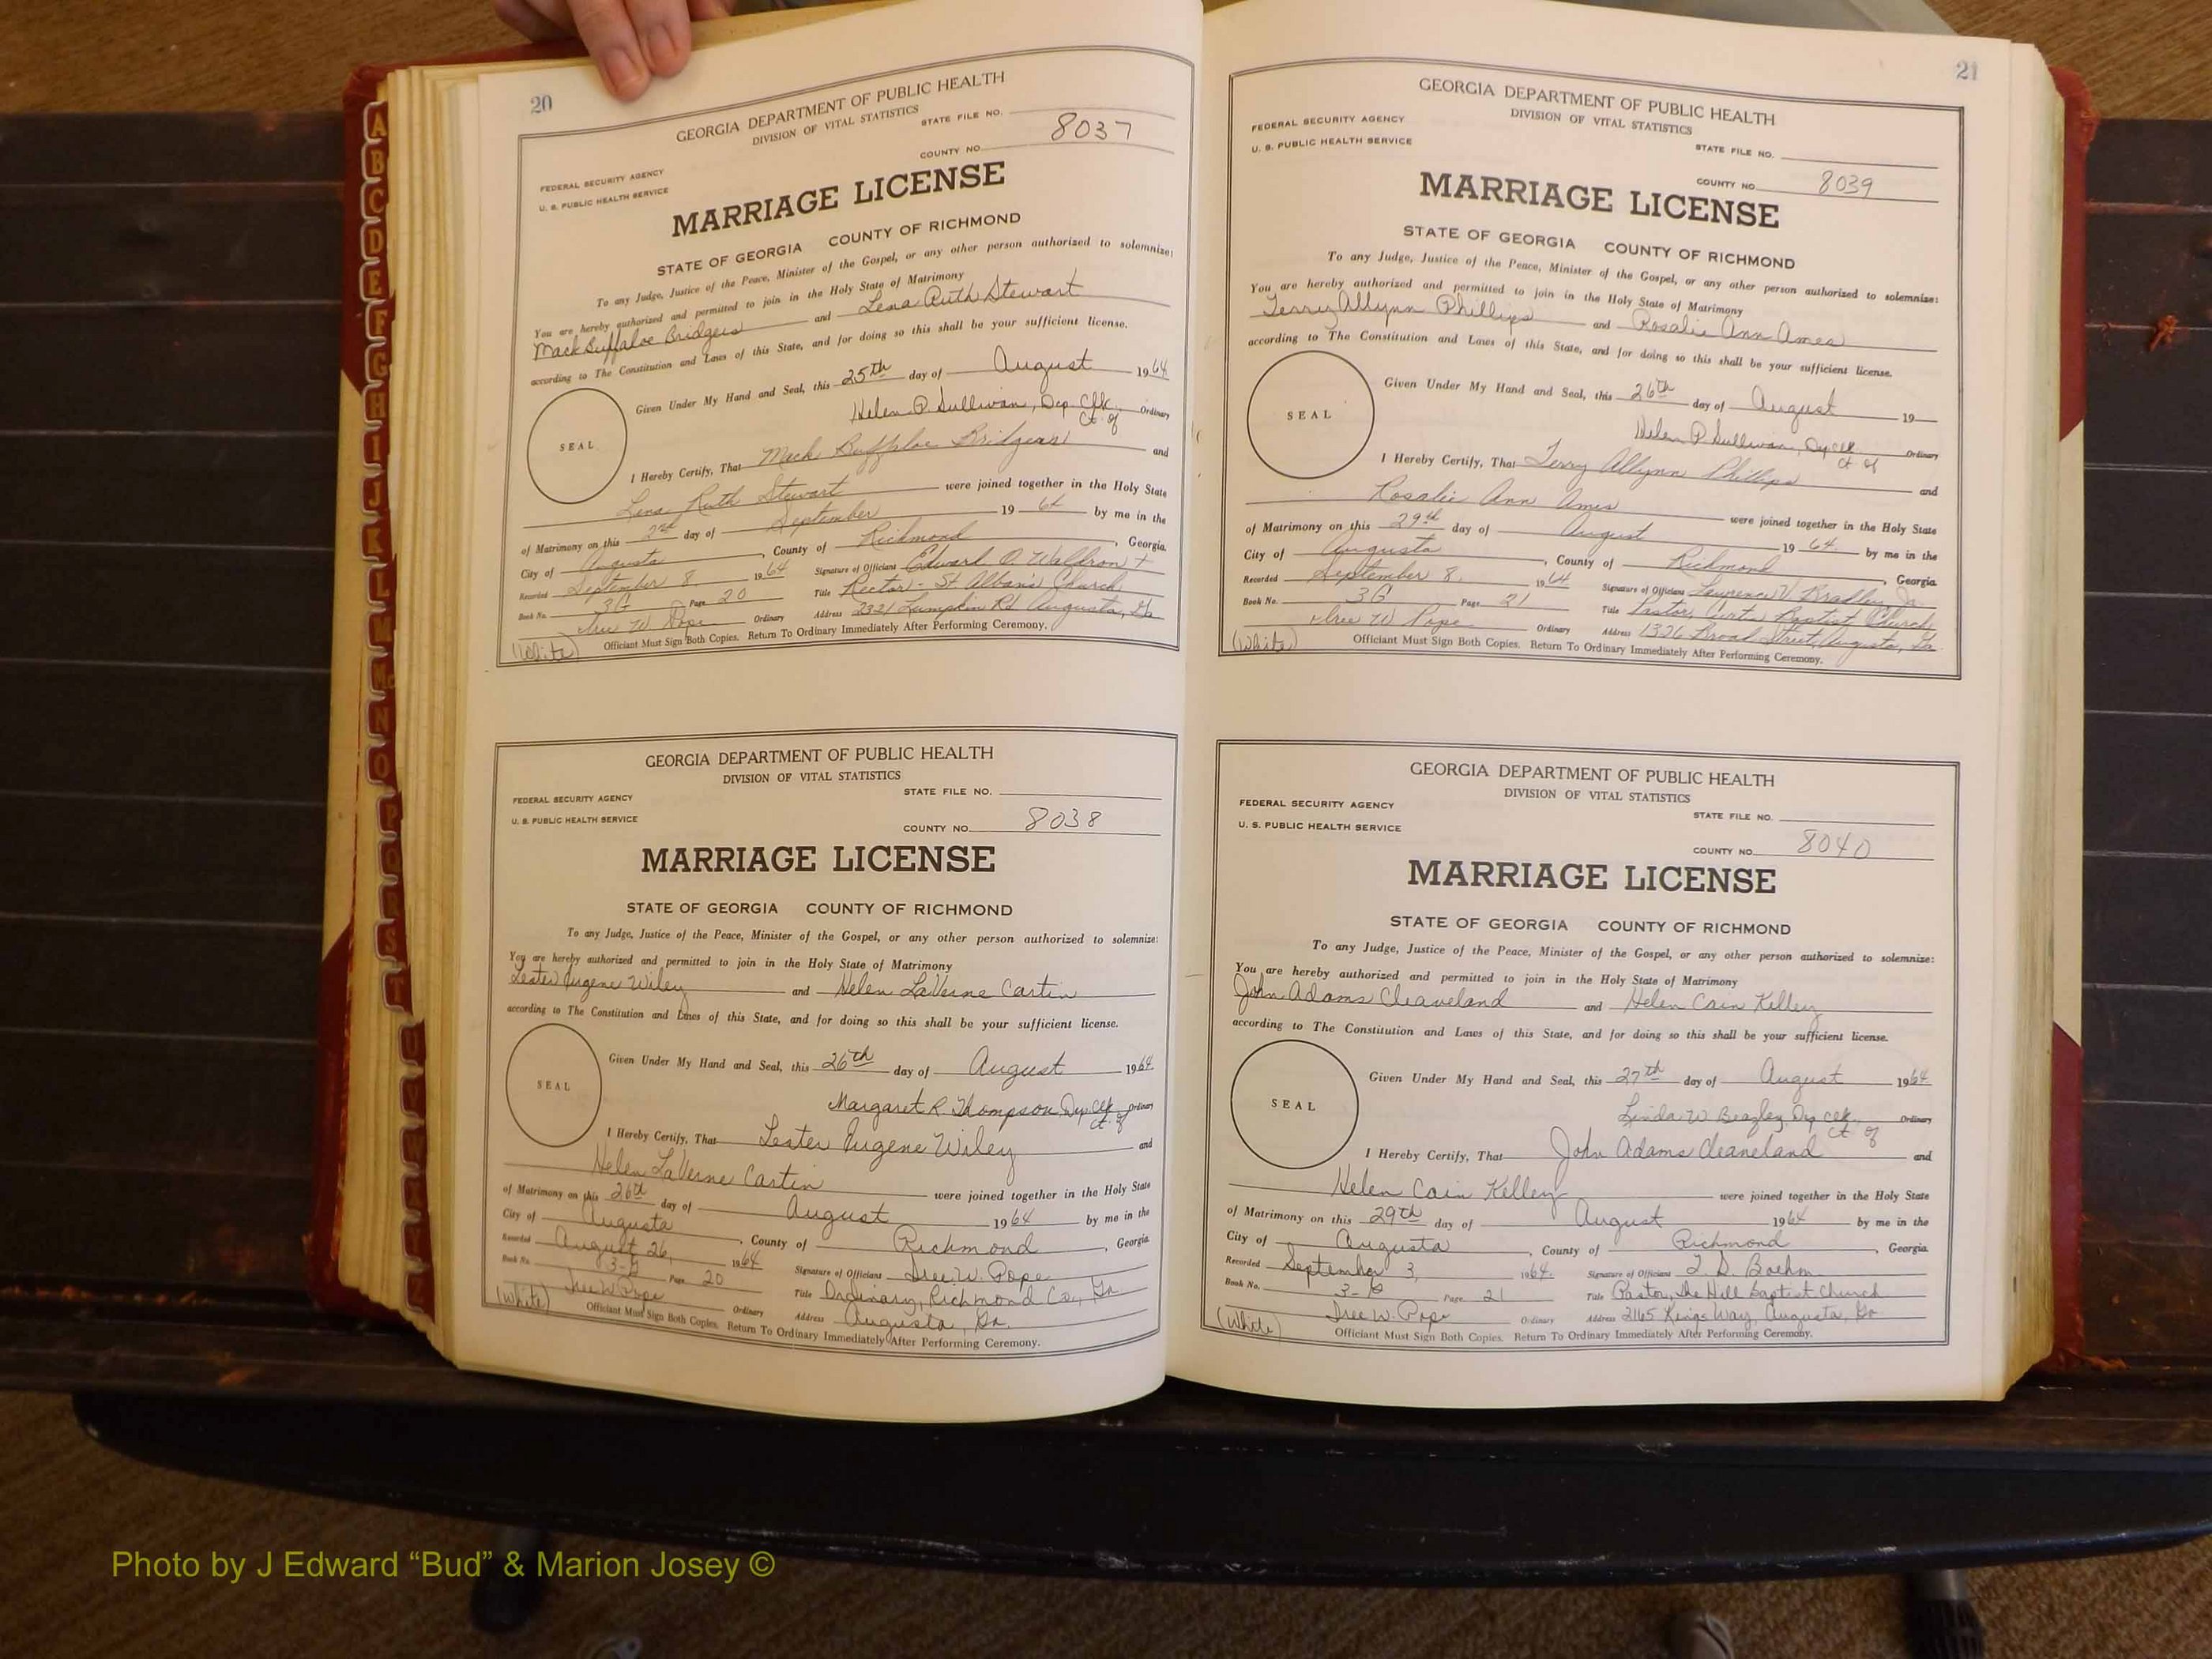 20
GEORGIA DEPARTMENT OF PUBLIC HEALTH
DIVISION OF VITAL STATISTICS
STATE FILE NO.
FEDERAL SECURITY AGENCY
U. S. PUBLIC HEALTH SERVICE
COUNTY NO. 8037
MARRIAGE LICENSE
STATE OF GEORGIA COUNTY OF RICHMOND
To any Judge, Justice of the Peace, Minister of the Gospel, or any other person authorized to solemnize:
You are hereby authorized and permitted to join in the Holy State of Matrimony
Mack Buffaloe Bridgers and Lena Ruth Stewart
according to The Constitution and Laws of this State, and for doing so this shall be your sufficient license.
Given Under My Hand and Seal, this 25th day of August 1964
Helen P Sullivan, Dep. Clk. Ordinary
Ct. of
SEAL
I Hereby Certify, That Mack Buffaloe Bridgers and
Lena Ruth Stewart were joined together in the Holy State
of Matrimony on this 2nd day of September 19 64 by me in the
City of Augusta, County of Richmond, Georgia.
Recorded September 8 1964 Signature of Officiant Edward O. Waldron +
Book No. 3G Page 20 Title Rector - St Alban's Church
Iree W Pope Ordinary Address 2321 Lumpkin Rd Augusta, Ga.
(White) Officiant Must Sign Both Copies. Return To Ordinary Immediately After Performing Ceremony.
GEORGIA DEPARTMENT OF PUBLIC HEALTH
DIVISION OF VITAL STATISTICS
STATE FILE NO.
FEDERAL SECURITY AGENCY
U. S. PUBLIC HEALTH SERVICE
COUNTY NO. 8038
MARRIAGE LICENSE
STATE OF GEORGIA COUNTY OF RICHMOND
To any Judge, Justice of the Peace, Minister of the Gospel, or any other person authorized to solemnize:
You are hereby authorized and permitted to join in the Holy State of Matrimony
Lester Eugene Wiley and Helen LaVerne Cartin
according to The Constitution and Laws of this State, and for doing so this shall be your sufficient license.
Given Under My Hand and Seal, this 26th day of August 1964
Margaret R Thompson Dep. Clk. Ordinary
Ct. of
SEAL
I Hereby Certify, That Lester Eugene Wiley and
Helen LaVerne Cartin were joined together in the Holy State
of Matrimony on this 26th day of August 1964 by me in the
City of Augusta, County of Richmond, Georgia.
Recorded August 26, 1964 Signature of Officiant Iree W. Pope
Book No. 3-G Page 20 Title Ordinary, Richmond Co., Ga.
Iree W Pope Ordinary Address Augusta, Ga.
(White) Officiant Must Sign Both Copies. Return To Ordinary Immediately After Performing Ceremony.
21
GEORGIA DEPARTMENT OF PUBLIC HEALTH
DIVISION OF VITAL STATISTICS
FEDERAL SECURITY AGENCY
U. S. PUBLIC HEALTH SERVICE
STATE FILE NO.
COUNTY NO. 8039
MARRIAGE LICENSE
STATE OF GEORGIA COUNTY OF RICHMOND
To any Judge, Justice of the Peace, Minister of the Gospel, or any other person authorized to solemnize:
You are hereby authorized and permitted to join in the Holy State of Matrimony
Terry Allynn Phillips and Rosalie Ann Ames
according to The Constitution and Laws of this State, and for doing so this shall be your sufficient license.
Given Under My Hand and Seal, this 26th day of August 19
Helen P Sullivan, Dep Clk Ordinary
Ct of
SEAL
I Hereby Certify, That Terry Allynn Phillips and
Rosalie Ann Ames were joined together in the Holy State
of Matrimony on this 29th day of August 19 64 by me in the
City of Augusta, County of Richmond, Georgia.
Recorded September 8, 1964 Signature of Officiant Lawrence V Bradley, Jr.
Book No. 3G Page 21 Title Pastor, Curtis Baptist Church
Iree W Pope Ordinary Address 1326 Broad Street Augusta, Ga.
(White) Officiant Must Sign Both Copies. Return To Ordinary Immediately After Performing Ceremony.
GEORGIA DEPARTMENT OF PUBLIC HEALTH
DIVISION OF VITAL STATISTICS
FEDERAL SECURITY AGENCY
U. S. PUBLIC HEALTH SERVICE
STATE FILE NO.
COUNTY NO. 8040
MARRIAGE LICENSE
STATE OF GEORGIA COUNTY OF RICHMOND
To any Judge, Justice of the Peace, Minister of the Gospel, or any other person authorized to solemnize:
You are hereby authorized and permitted to join in the Holy State of Matrimony
John Adams Cleaveland and Helen Cain Kelley
according to The Constitution and Laws of this State, and for doing so this shall be your sufficient license.
Given Under My Hand and Seal, this 27th day of August 1964
Linda W Beazley, Dep Clk. Ordinary
Ct of
SEAL
I Hereby Certify, That John Adams Cleaveland and
Helen Cain Kelley were joined together in the Holy State
of Matrimony on this 29th day of August 1964 by me in the
City of Augusta, County of Richmond, Georgia.
Recorded September 3, 1964 Signature of Officiant Boehm
Book No. 3-G Page 21 Title Pastor, The Hill Baptist Church
Iree W. Pope Ordinary Address 2165 Kings Way, Augusta, Ga.
(White) Officiant Must Sign Both Copies. Return To Ordinary Immediately After Performing Ceremony.
A
B
C
D
E
F
G
H
I
J
K
L
M
Mc
N
O
P
Q
R
S
T
U
V
W
Y
Z
Photo by J Edward “Bud” & Marion Josey ©